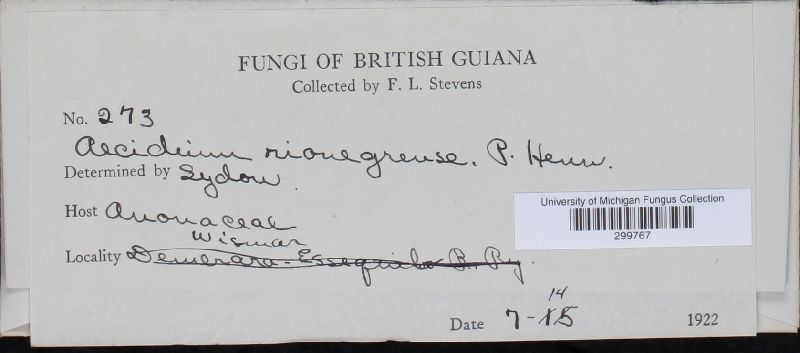 FUNGI OF BRITISH GUIANA
Collected by F. L. Stevens
No. 273
Aecidium rionegrense. P. Henn.
Determined by Sydow.
University of Michigan Fungus Collection
299767
Host Anonaceae
Wismar
Locality Demerara-Essequibo R. Ry.
14
Date 7-15 1922